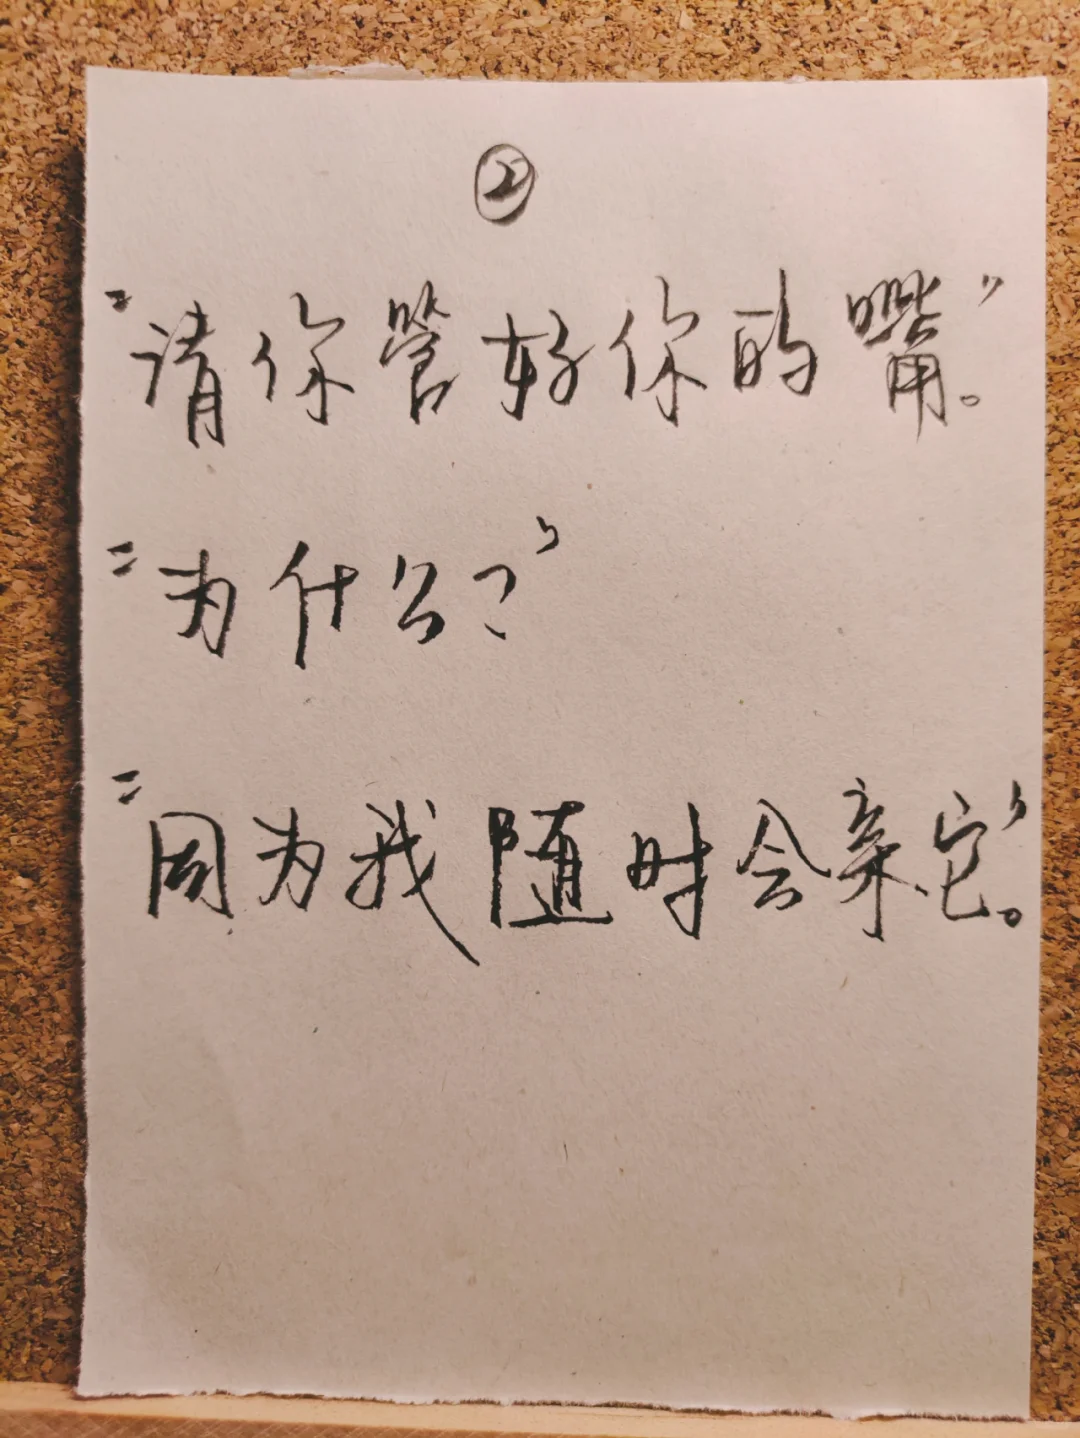 ②
"请你管好你的嘴。"
"为什么?"
"因为我随时会亲它。"